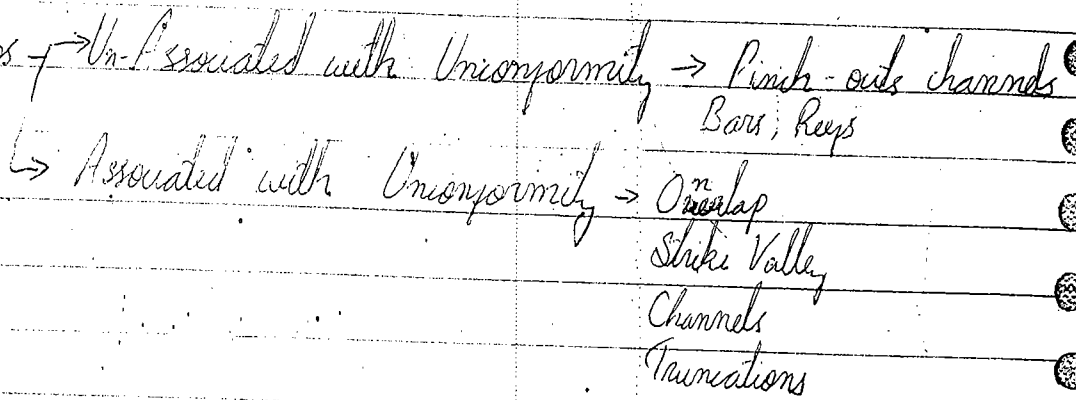 → Un-Associated with Unconformity → Pinch-outs channels
Bars, Reefs
↳ Associated with Unconformity → Onlap
Strike Valley
Channels
Truncations